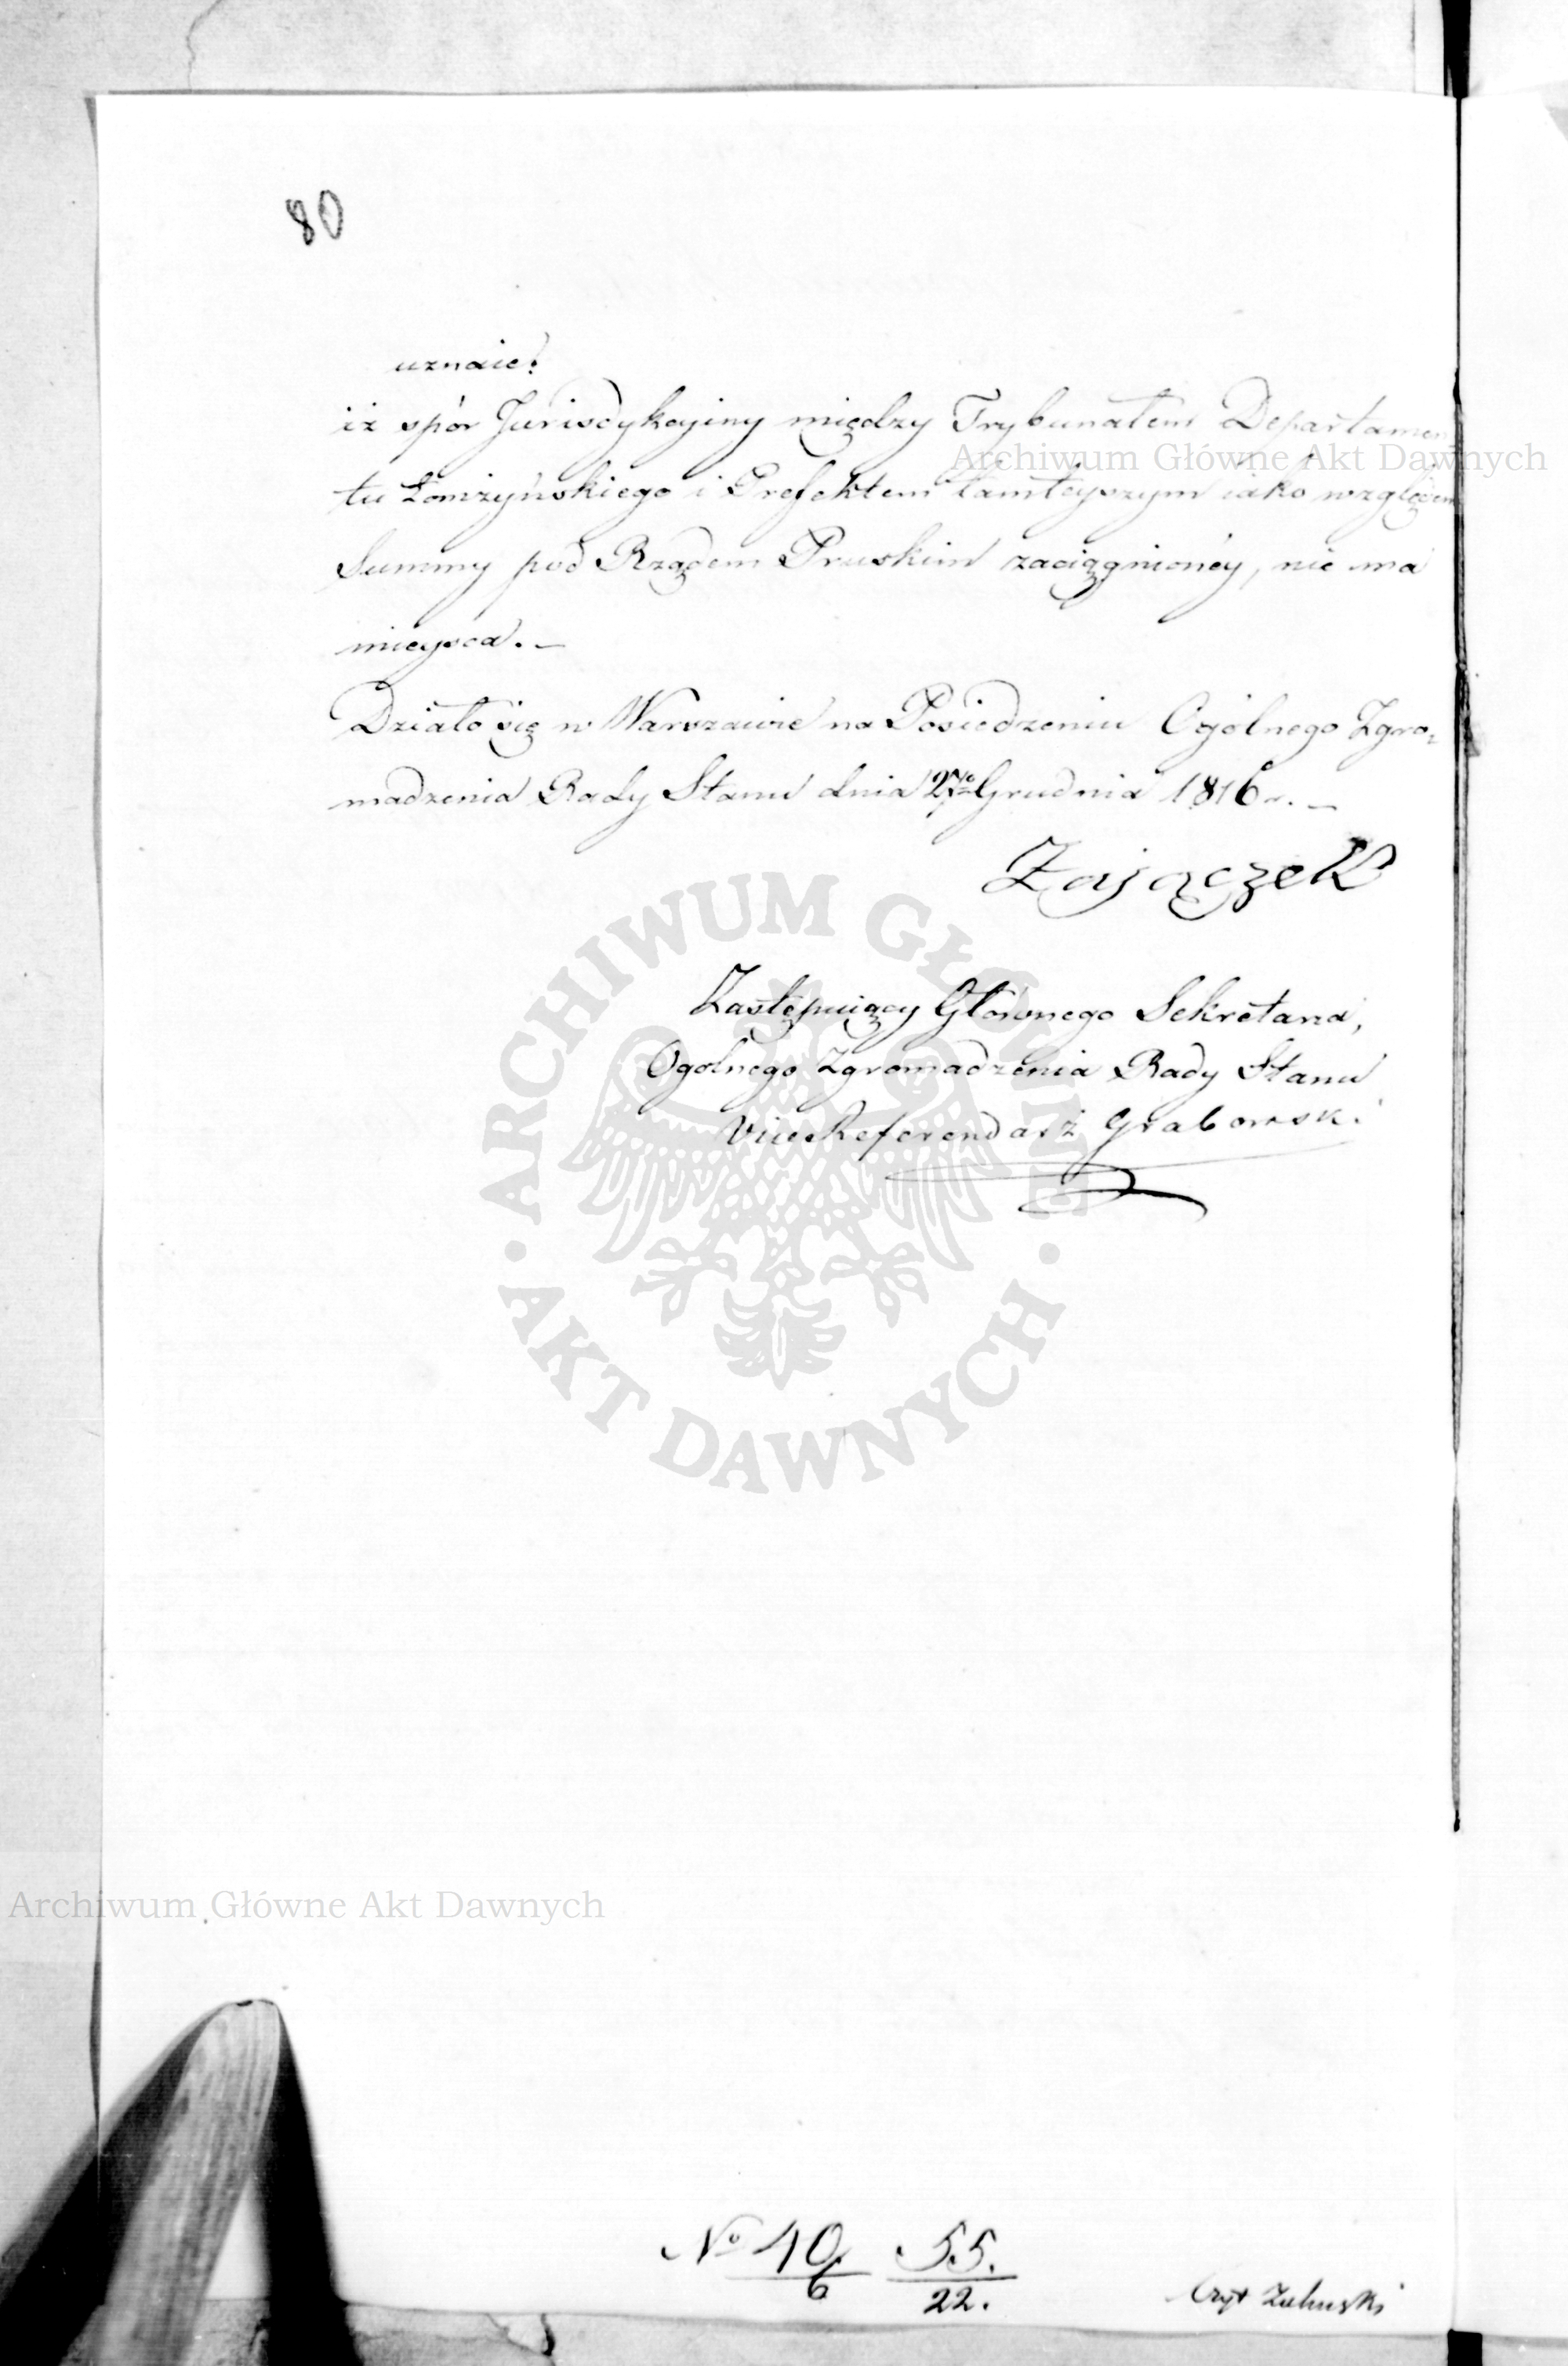 80
uznaie:
iż spór Jurisdykcyiny między Trybunałem Departamen
Archiwum Główne Akt Dawnych
tu Łomżyńskiego i Prefektem tamteyszym iako względem
Summy pod Rządem Pruskim zaciągnionéy, nie ma
mieysca. –
Działo się w Warszawie na Posiedzeniu Ogólnego Zgro-
madzenia Rady Stanu dnia 27o Grudnia 1816 r. –
Zajączek
Zastępuiący Głównego Sekretarza,
Ogolnego Zgromadzenia Rady Stanu
ViceReferendarz Grabowski
ARCHIWUM GŁÓWNE
· AKT DAWNYCH ·
Archiwum Główne Akt Dawnych
No 40/6 55./22.